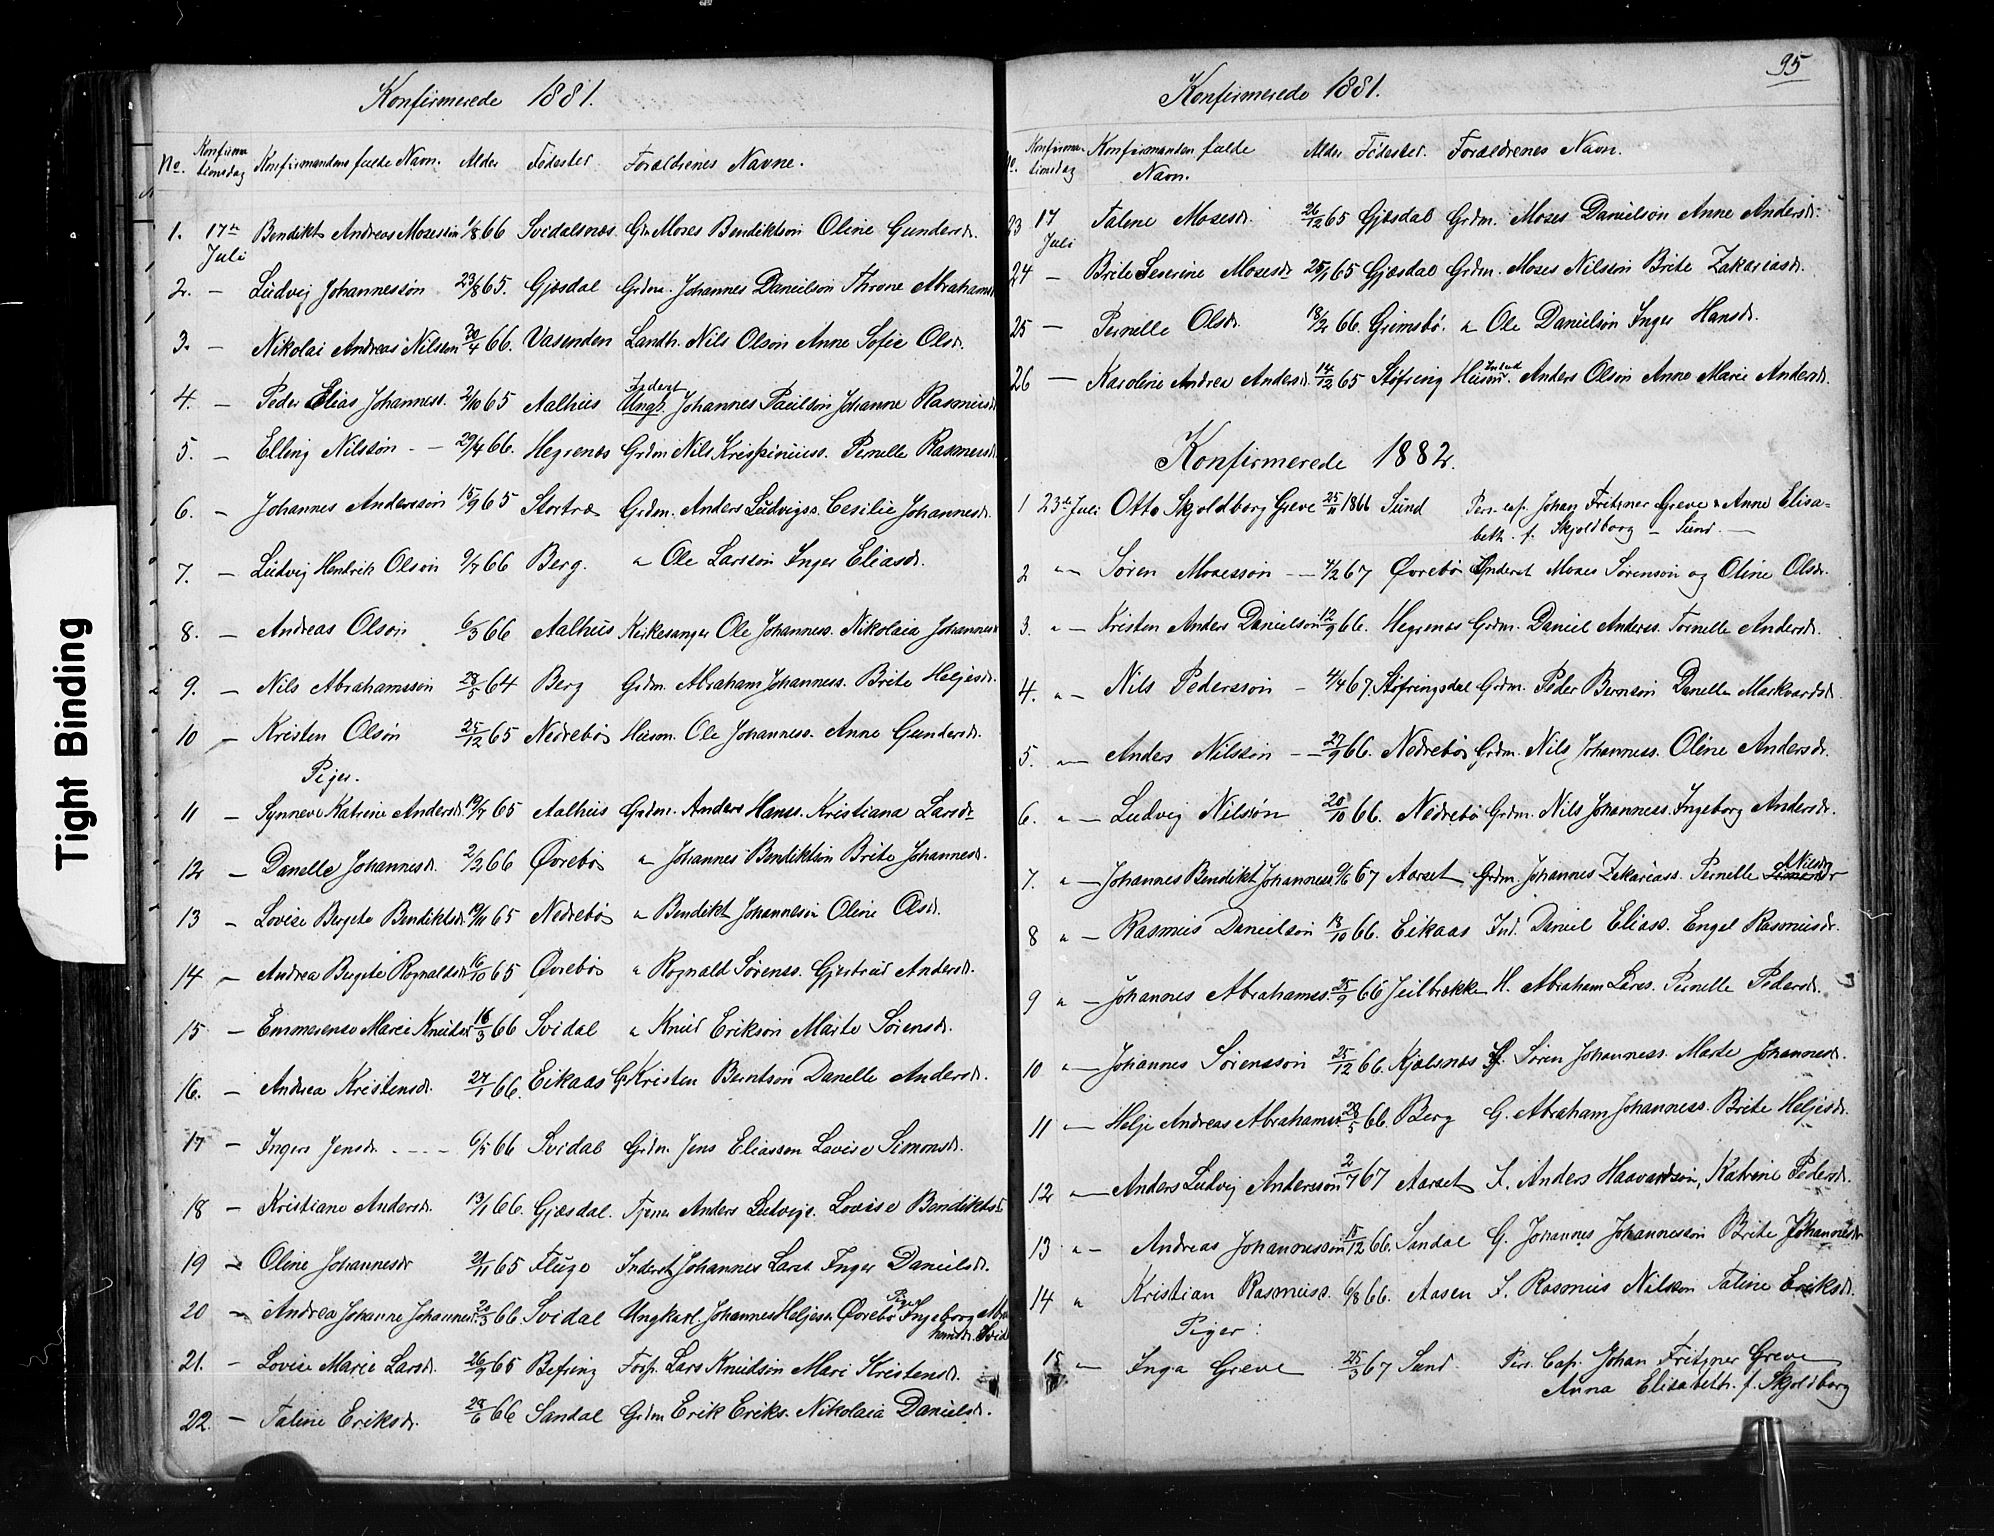 Tight Binding
Konfirmerede 1881.
No. Konfirma- Konfirmandens fulde Navn. Alder Fødester. Forældrenes Navne.
tionsdag
1. 17de Bendikt Andreas Mosessøn 1/8 66 Svidalsnæs Gm Moses Bendiktsøn Oline Gundersd.
Juli
2. – Ludvig Johannessøn 23/8 65. Gjæsdal Grdm. Johannes Danielsøn Throne Abrahamsd
3. – Nikolai Andreas Nilsen 30/4 66. Vasenden Landh. Nils Olsøn Anne Sofie Olsd.
Inderst
4. – Peder Elias Johanness. 2/10 65 Aalhus Ungk. Johannes Paulsøn Johanne Rasmusd
5. – Elling Nilssøn – 29/4 66. Hegrenæs Grdm Nils Krispiniuss. Pernelle Rasmusd
6. – Johannes Anderssøn 15/9 65 Stortræ Grdm. Anders Ludvigss. Cesilie Johannesd.
7. – Ludvig Hendrik Olsøn 9/7 66 Berg. " Ole Larssøn Inger Eliasd.
8. – Andreas Olsøn 6/3 66 Aalhus Kirkesanger Ole Johanness. Nikolaia Johannesd
9. – Nils Abrahamssøn 28/5 64 Berg Grdm. Abraham Johanness. Brite Heljesd.
10 – Kristen Olsøn 25/12 65 Nedrebø Husm. Ole Johanness. Anne Gundersd.
Piger.
11 – Synneve Katrine Andersd. 19/7 65 Aalhus Grdm. Anders Hanss. Kristiana Larsdr
12 – Danelle Johannesd. 2/2 66 Øvrebø " Johannes Bendiktsøn Brite Johannesd.
13 – Lovise Bergete Bendiktsd. 19/11 65 Nedrebø " Bendikt Johannesøn Oline Olsd.
14 – Andrea Bergete Rognaldsd. 16/10 65 Øvrebø " Rognald Sørenss. Gjertrud Andersd.
15 – Emmerense Marie Knudsd 16/3 66 Svidal " Knud Eriksøn Marte Sørensd.
16. – Andrea Kristensd. 27/1 66. Eikaas G. Kristen Berntsøn Danelle Andersd.
17 – Inger Jensd. - - - - 6/5 66 Svidal Grdm. Jens Eliassen Lovise Simonsd.
18 – Kristiane Andersd. 13/1 66. Gjæsdal. Tjener Anders Ludvigs. Lovise Bendiktsd
19 – Oline Johannesdr 21/11 65 Fluge Inderst Johannes Larss. Inger Danielsd.
20 – Andrea Johanne Johannesd. 20/3 66 Svidal Ungkarl Johannes Heljess. Øvrebø Pige Ingeborg
21. – Lovise Marie Larsd. 26/9 65 Befring Forp. Lars Knudsøn Mari Kristensd.
22. – Taline Eriksd. 29/6 66 Sandal Grdm Erik Eriks. Nikolaia Danielsd.
95
Konfirmerede 1881.
No. Konfirma- Konfirmanden fulde Alder Fødester. Forældrenes Navn.
tionsdag Navn.
23 17 Talene Mosesd. 26/12 65 Gjæsdal Grdm. Moses Danielsøn Anne Andersd.
Juli
24 – Brite Severine Mosesd 25/1 65 Gjæsdal Grdm. Moses Nilssøn Brite Zakariasd.
25 – Pernelle Olsd. 18/2 66. Grimsbø. " Ole Danielsøn Inger Hansd.
26 – Karoline Andrea Andersd. 14/12 65 Støfring Husm. Anders Olsøn Anne Marie Andersd.
Konfirmerede 1882.
1 23de Juli Otto Skjoldborg Greve 25/11 1866 Sund Pers. cap. Johan Fritzner Greve & Anne Elisa-
beth. f. Skjoldborg – Sund. –
2 " – Søren Mosessøn – 4/2 67 Øvrebø Inderst Moses Sørensøn og Oline Olsd.
3. " – Kristen Anders Danielsøn 12/9 66. Hegrenæs Grdm. Daniel Anderss. Tornelle Andersd.
4. " – Nils Pederssøn – 4/4 67. Støfringsdal Grdm. Peder Berntsøn Danelle Markvardsd.
5. " – Anders Nilssøn – 27/9 66. Nedrebø Grdm. Nils Johanness. Oline Andersd.
6. " – Ludvig Nilssøn 20/10 66. Nedrebø Grdm. Nils Johanness. Ingeborg Andersd.
7. " – Johannes Bendikt Johanness. 9/6 67 Aarset Grdm. Johannes Zakariass. Pernelle Nilsdr
8 " – Rasmus Danielsøn 18/10 66. Eikaas Ind. Daniel Eliass. Engel Rasmusdr.
9 " – Johannes Abrahamss. 25/9 66 Jeilbrække H. Abraham Larss. Pernelle Pedersd.
10 " – Johannes Sørenssøn 25/12 66. Kjølsnæs Søren Johanness. Marte Johannesd.
11 " – Helje Andreas Abrahamss. 28/5 66 Berg G. Abraham Johanness. Brite Heljesd.
12 " – Anders Ludvig Anderssøn 2/7 67 Aarset I. Anders Haavardsøn, Katrine Pedersd.
13 " – Andreas Johannessøn 15/12 66. Sandal G. Johannes Johannessøn Brite Johannesdr
14 " Kristian Rasmuss. 6/8 66. Aasen I. Rasmus Nilssøn Taline Eriksd.
Piger:
15 " – Inga Greve 25/3 67 Sund. Pers. Cap. Johan Fritzner Greve
Anna Elisabeth. f. Skjoldborg